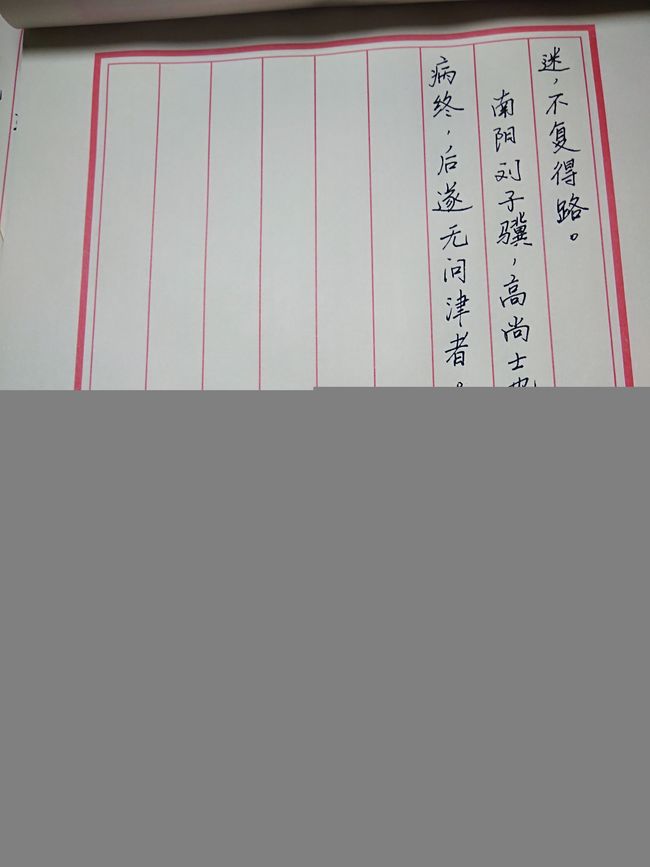 迷，不复得路。
南阳刘子骥，高尚士也
病终，后遂无问津者。